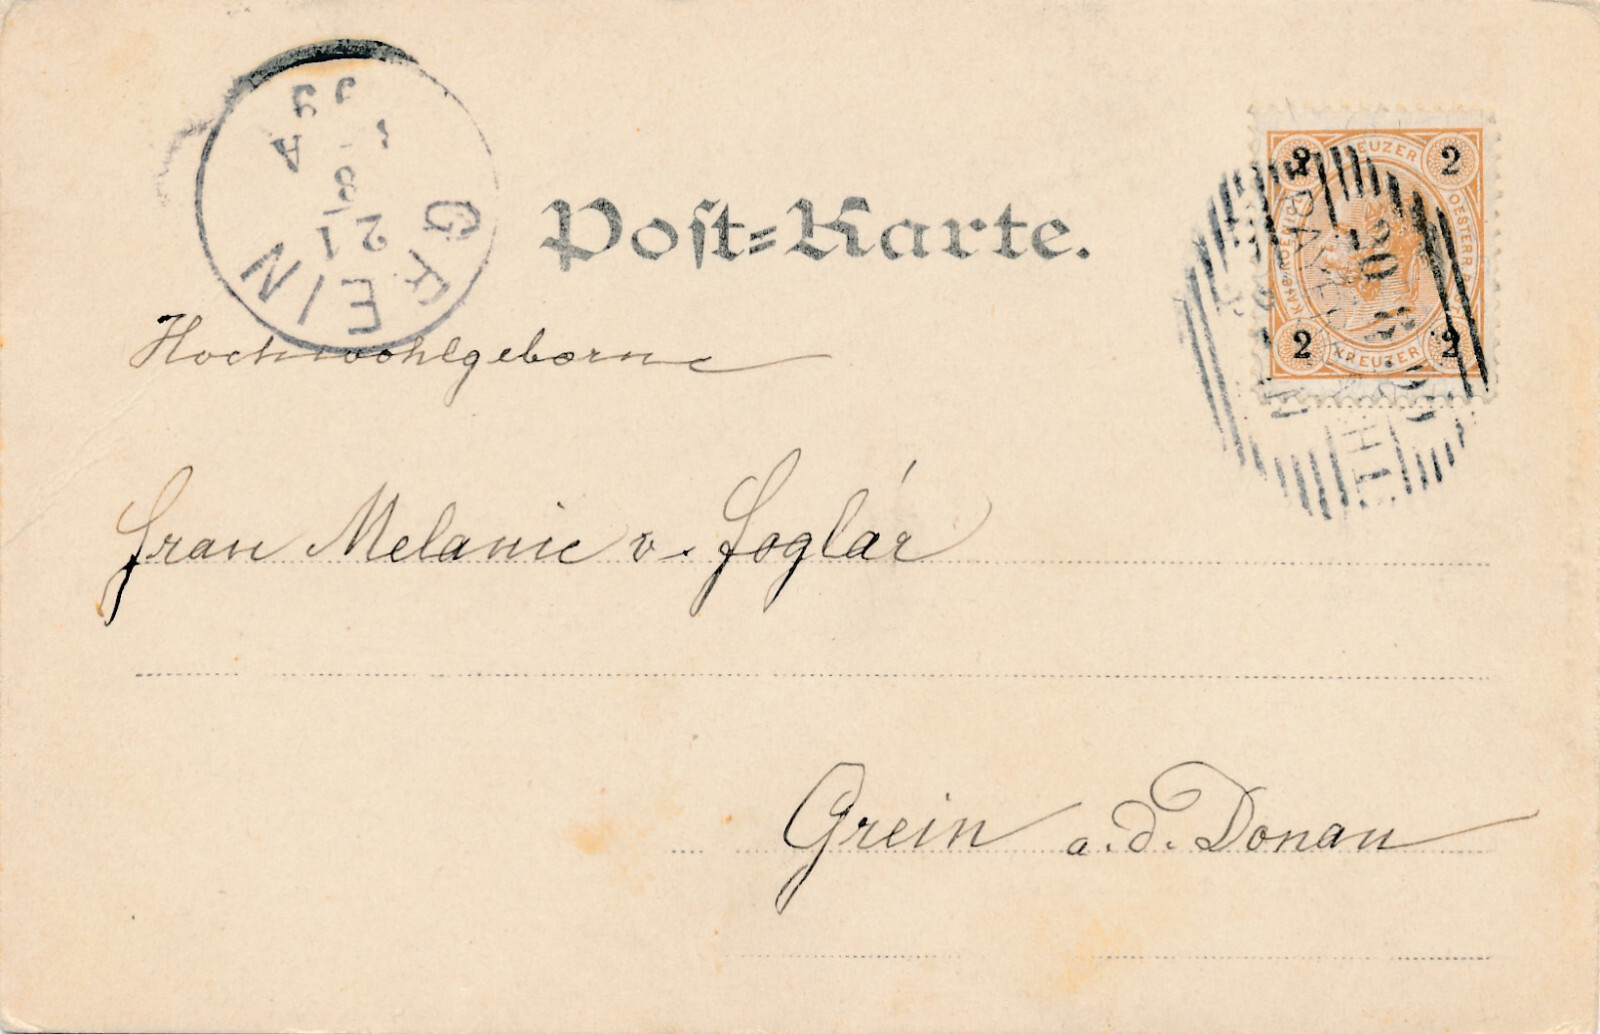 Post=Karte.
GREIN
21
8
99
A
2 KREUZER 2
OESTERR.
2 KREUZER 2
20
Hochwohlgeborne
Frau Melanie v. Foglár
Grein a.d. Donau